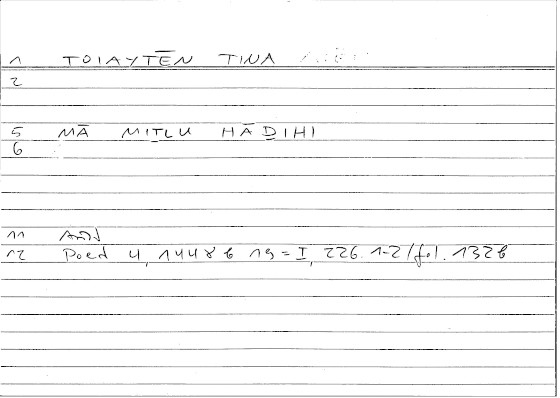 1 TOIAYTĒN TINA
2
5 MĀ MIṮLU HĀḎIHI
6
11 Arist
12 Poet 4, 1448 b 19 = I, 226. 1-2/fol. 132b